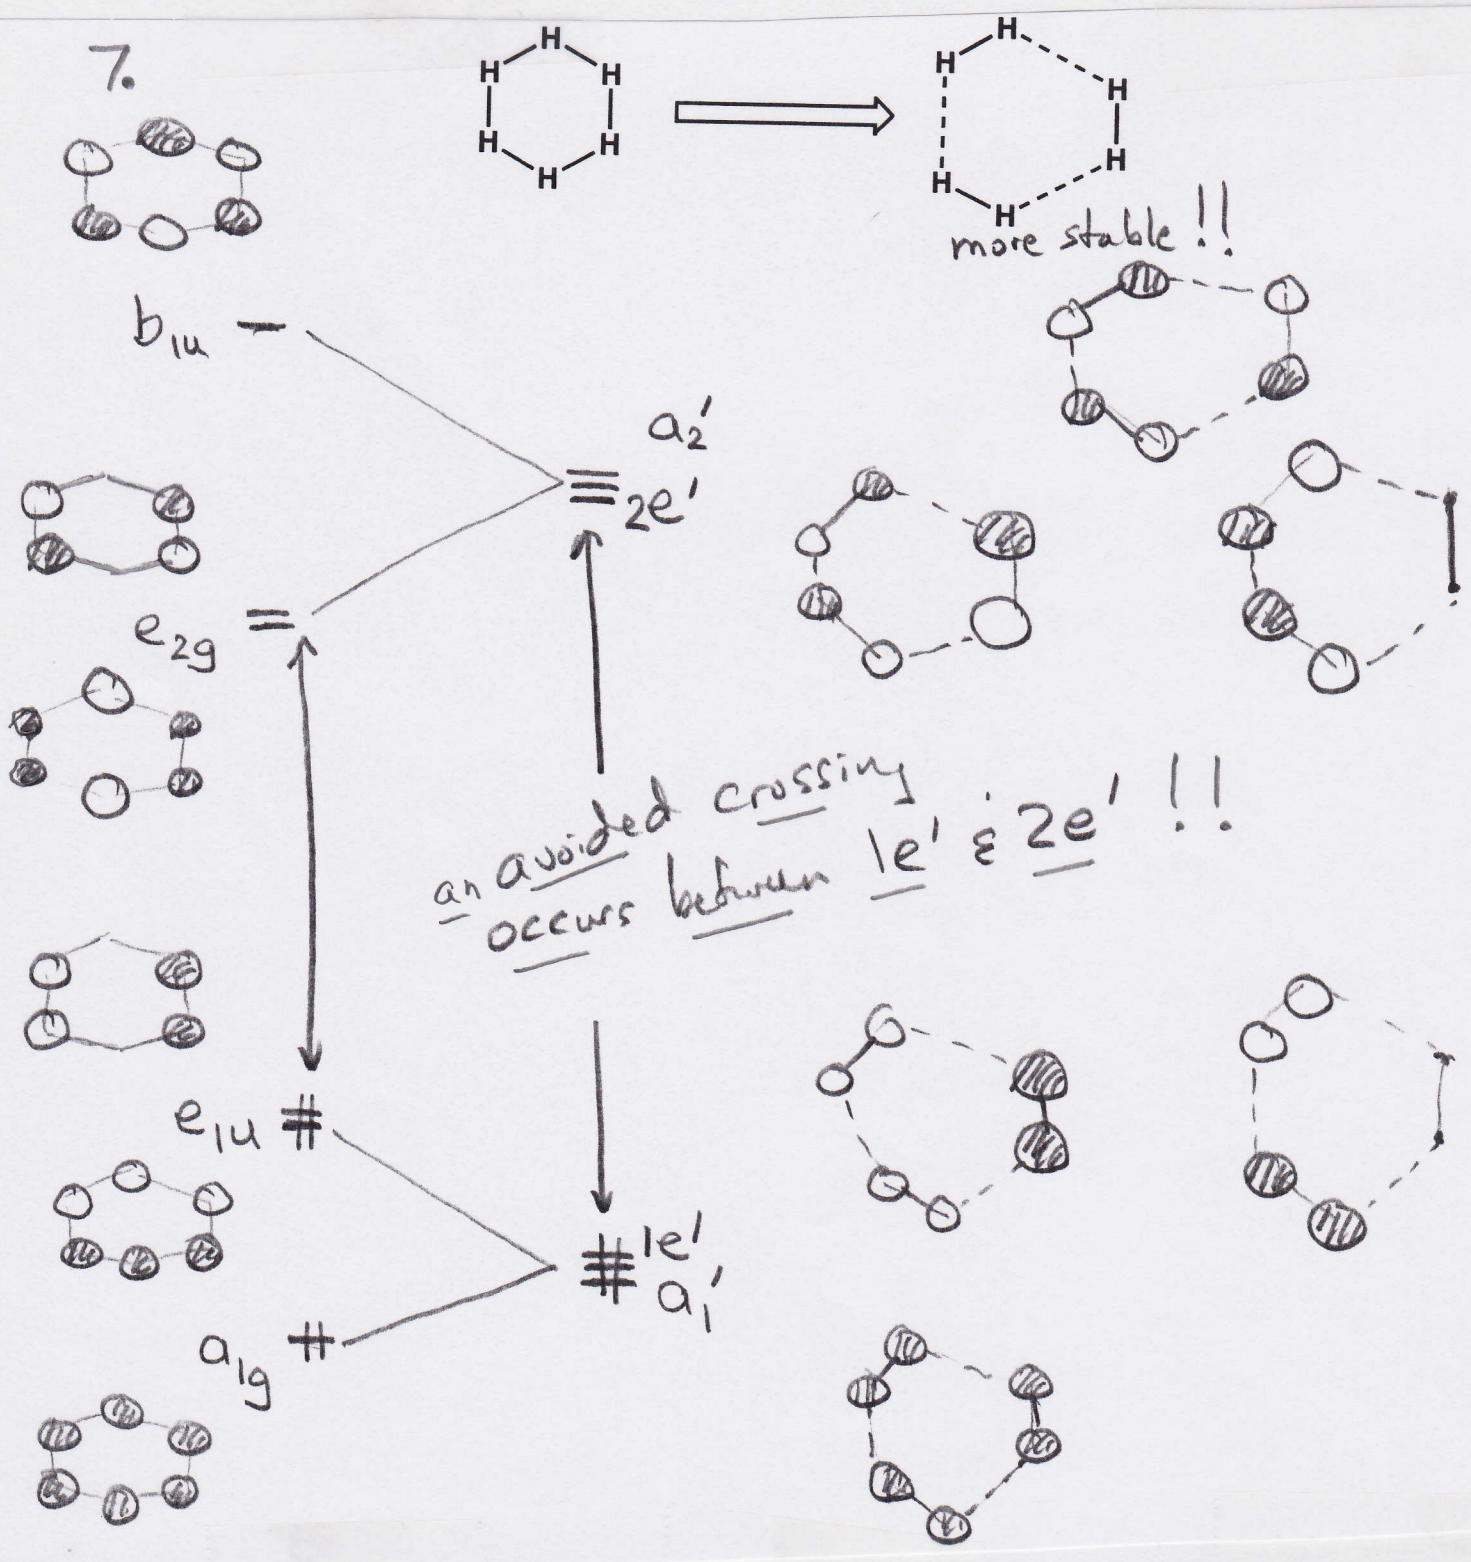 7.
H H H H H H
H H H H H H
more stable !!
b1u
a2'
2e'
e2g
an avoided crossing
occurs between 1e' & 2e' !!
e1u
1e'
a1'
a1g